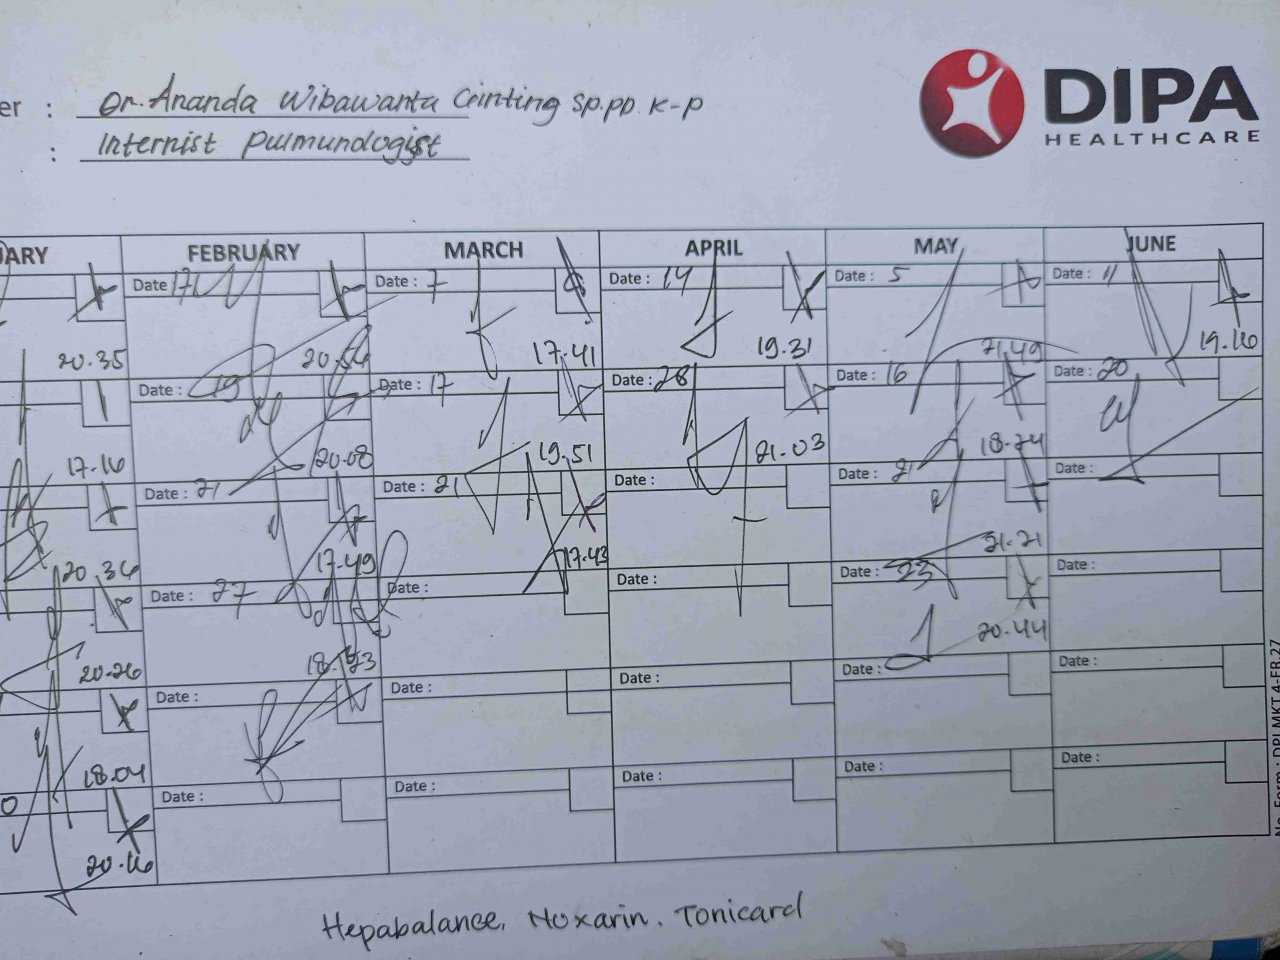 er : Dr. Ananda Wibawanta Ginting Sp.PD. K-P
: Internist Pulmunologist
DIPA
HEALTHCARE
UARY FEBRUARY MARCH APRIL MAY JUNE
Date : 17 Date : 7 Date : 14 Date : 5 Date : 11
20.35 20.56 17.41 19.31 21.49 19.16
Date : 19 Date : 17 Date : 28 Date : 16 Date : 20
17.16 20.08 19.51 21.03 18.24
Date : 21 Date : 21 Date : Date : 21 Date :
20.36 17.49 17.43 21.21
Date : 27 Date : Date : Date : 23 Date :
20.26 18.53 20.44
Date : Date : Date : Date : Date :
18.04
Date : Date : Date : Date : Date :
20.16
Hepabalance, Noxarin. Tonicard
No. Form : DPI.MKT.4-FR.27